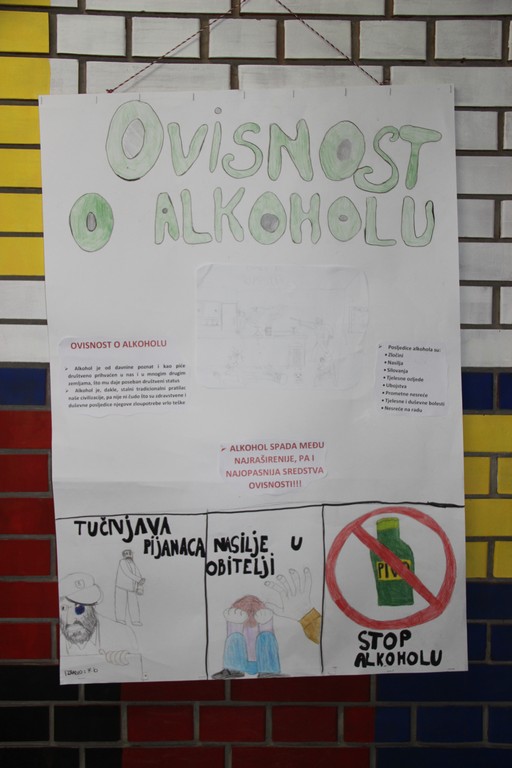 OVISNOST
O ALKOHOLU
OVISNOST O ALKOHOLU
➢ Alkohol je od davnine poznat i kao piće
društveno prihvaćen u nas i u mnogim drugim
zemljama, što mu daje poseban društveni status
➢ Alkohol je, dakle, stalni tradicionalni pratilac
naše civilizacije, pa nije ni čudo što su zdravstvene i
duševne posljedice njegove zlouporabe vrlo teške
➢ Posljedice alkohola su:
• Zločini
• Nasilja
• Silovanja
• Tjelesne ozljede
• Ubojstva
• Prometne nesreće
• Tjelesne i duševne bolesti
• Nesreće na radu
➢ ALKOHOL SPADA MEĐU
NAJRAŠIRENIJE, PA I
NAJOPASNIJA SREDSTVA
OVISNOSTI!!!
TUČNJAVA
PIJANACA
NASILJE U
OBITELJI
PIVO
STOP
ALKOHOLU